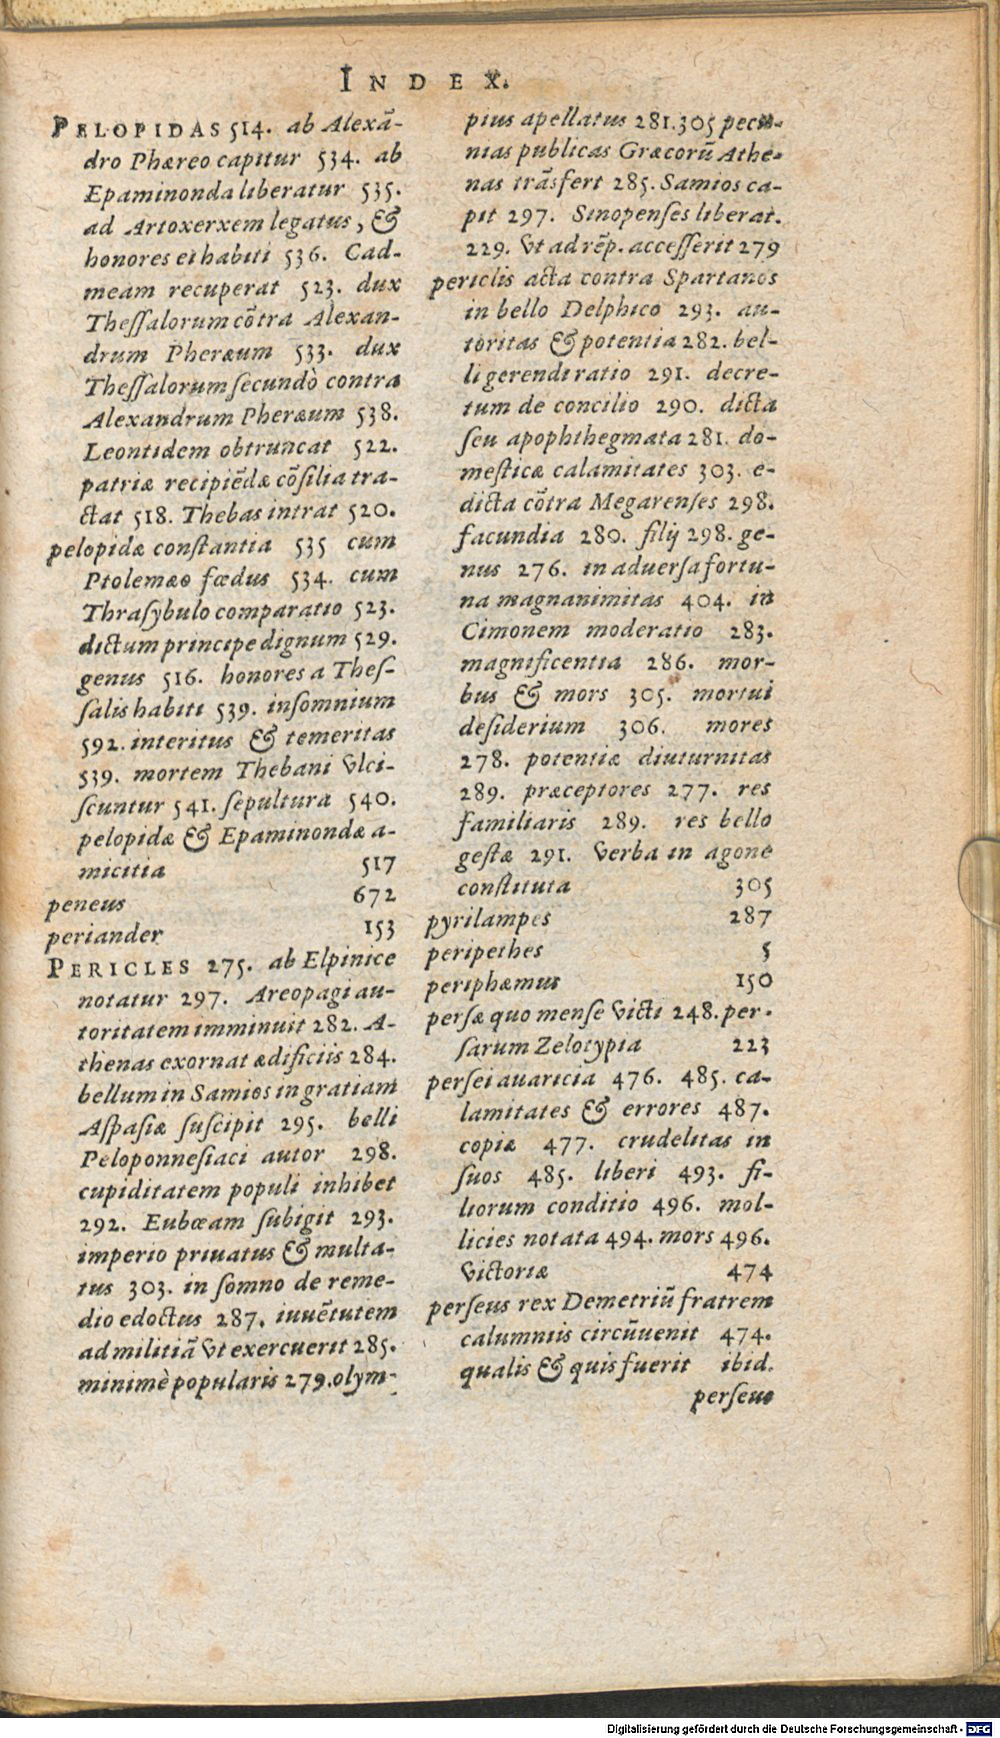 INDEX.
PELOPIDAS 514. ab Alexā-
dro Phæreo capitur 534. ab
Epaminonda liberatur 535.
ad Artoxerxem legatus, &
honores ei habiti 536. Cad-
meam recuperat 523. dux
Theſſalorum cōtra Alexan-
drum Pheræum 533. dux
Theſſalorum ſecundò contra
Alexandrum Pheræum 538.
Leontidem obtruncat 522.
patriæ recipiēdæ cōſilia tra-
ctat 518. Thebas intrat 520.
pelopidæ conſtantia 535 cum
Ptolemæo fœdus 534. cum
Thraſybulo comparatio 523.
dictum principe dignum 529.
genus 516. honores a Theſ-
ſalis habiti 539. inſomnium
592. interitus & temeritas
539. mortem Thebani vlci-
ſcuntur 541. ſepultura 540.
pelopidæ & Epaminondæ a-
micitia 517
peneus 672
periander 153
PERICLES 275. ab Elpinice
notatur 297. Areopagi au-
toritatem imminuit 282. A-
thenas exornat ædificiis 284.
bellum in Samios in gratiam
Aſpaſiæ ſuſcipit 295. belli
Peloponneſiaci autor 298.
cupiditatem populi inhibet
292. Eubœam ſubigit 293.
imperio priuatus & multa-
tus 303. in ſomno de reme-
dio edoctus 287. iuuētutem
ad militiā vt exercuerit 285.
minimè popularis 279. olym-
pius apellatus 281. 305 pecu-
nias publicas Græcorū Athe-
nas trāsfert 285. Samios ca-
pit 297. Sinopenſes liberat.
229. vt ad rēp. acceſſerit 279
periclis acta contra Spartanos
in bello Delphico 293. au-
toritas & potentia 282. bel-
li gerendi ratio 291. decre-
tum de concilio 290. dicta
ſeu apophthegmata 281. do-
meſticæ calamitates 303. e-
dicta cōtra Megarenſes 298.
facundia 280. filij 298. ge-
nus 276. in aduerſa fortu-
na magnanimitas 404. in
Cimonem moderatio 283.
magnificentia 286. mor-
bus & mors 305. mortui
deſiderium 306. mores
278. potentiæ diuturnitas
289. præceptores 277. res
familiaris 289. res bello
geſtæ 291. verba in agone
conſtituta 305
pyrilampes 287
peripethes 5
periphæmus 150
perſæ quo menſe victi 248. per-
ſarum Zelotypia 223
perſei auaricia 476. 485. ca-
lamitates & errores 487.
copiæ 477. crudelitas in
ſuos 485. liberi 493. fi-
liorum conditio 496. mol-
licies notata 494. mors 496.
victoriæ 474
perſeus rex Demetriū fratrem
calumniis circūuenit 474.
qualis & quis fuerit ibid.
perſeus
Digitalisierung gefördert durch die Deutsche Forschungsgemeinschaft - DFG